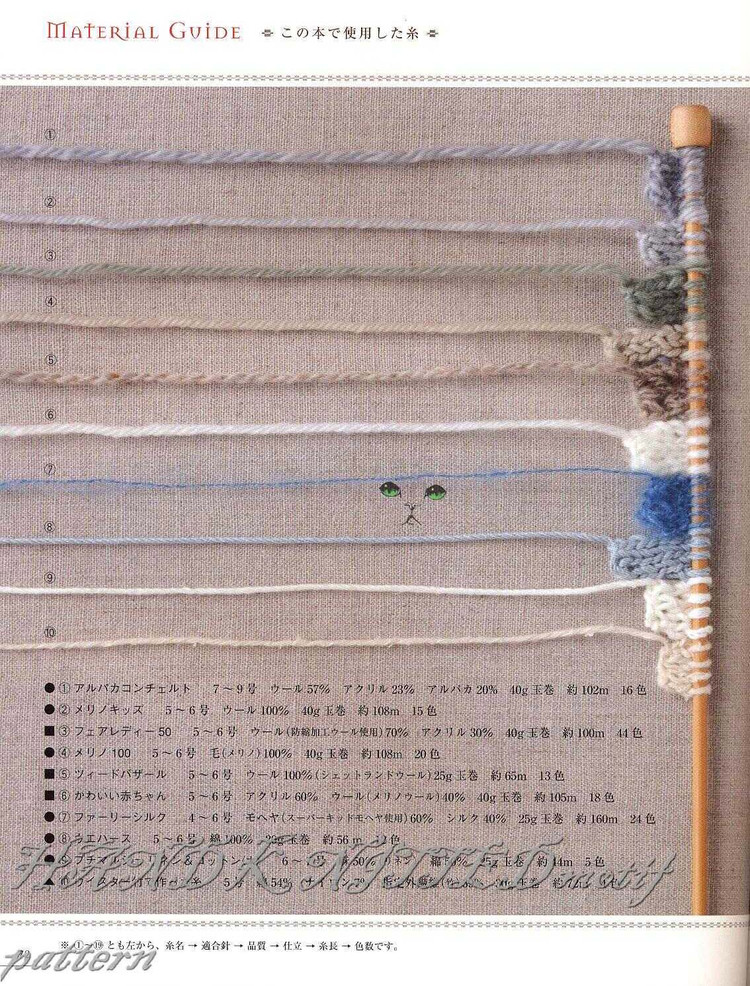 MATERIAL GUIDE この本で使用した糸
①
②
③
④
⑤
⑥
⑦
⑧
⑨
⑩
●①アルパカコンチェルト 7〜9号 ウール57% アクリル23% アルパカ20% 40g玉巻 約102m 16色
●②メリノキッズ 5〜6号 ウール100% 40g玉巻 約108m 15色
■③フェアレディー50 5〜6号 ウール(防縮加工ウール使用)70% アクリル30% 40g玉巻 約100m 44色
●④メリノ100 5〜6号 毛(メリノ)100% 40g玉巻 約108m 20色
■⑤ツィードバザール 5〜6号 ウール100%(シェットランドウール)25g玉巻 約65m 13色
■⑥かわいい赤ちゃん 5〜6号 アクリル60% ウール(メリノウール)40% 40g玉巻 約105m 18色
●⑦ファーリーシルク 4〜6号 モヘヤ(スーパーキッドモヘヤ使用)60% シルク40% 25g玉巻 約160m 24色
●⑧ウエハース 5〜6号 綿100% 玉巻 約56m
リネン 25g玉巻 約44m 5色
5号 54%
HAND KNITTED motif
※①〜⑲とも左から、糸名→適合針→品質→仕立→糸長→色数です。
pattern